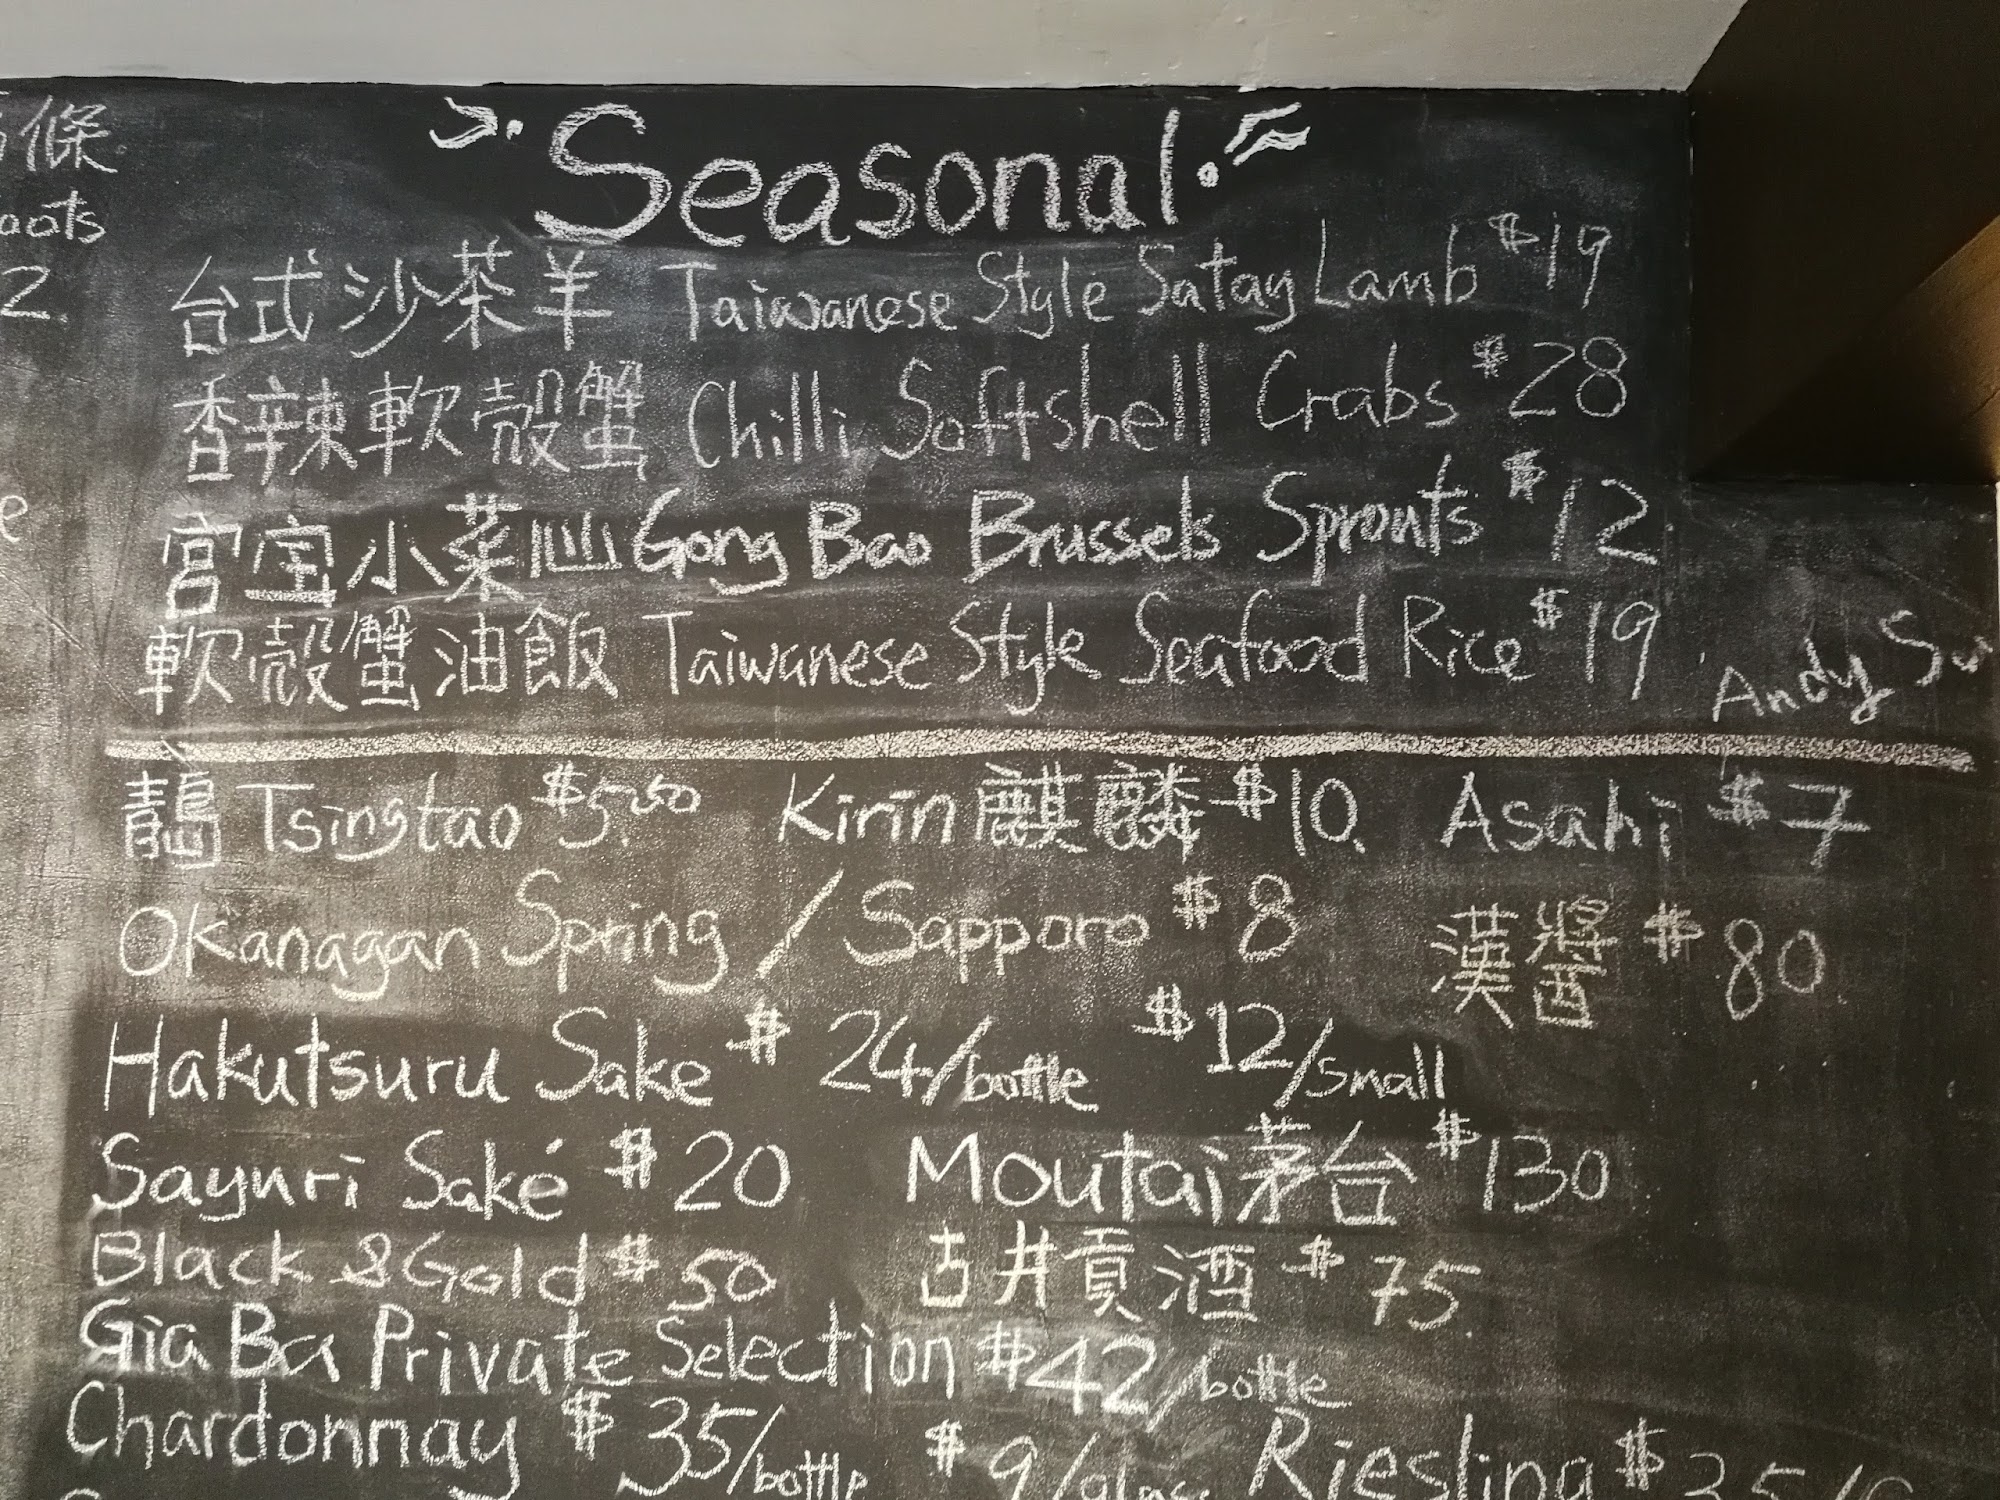 條
Seasonal
台式沙茶羊 Taiwanese Style Satay Lamb $19
2
香辣軟殼蟹 Chilli Softshell Crabs $28
宮宝小菜心 Gong Bao Brussels Sprouts $12
e
軟殼蟹油飯 Taiwanese Style Seafood Rice $19
Andy
Tsingtao $5.50 Kirin 麒麟 $10. Asahi $7
Okanagan Spring / Sapporo $8 漢醬 $80
Hakutsuru Sake $24/bottle $12/small
Sayuri Saké $20 Moutai 茅台 $130
Black & Gold $50 古井貢酒 $75
Gia Ba Private Selection $42/bottle
Chardonnay $35/bottle $9/glass Riesling $35/